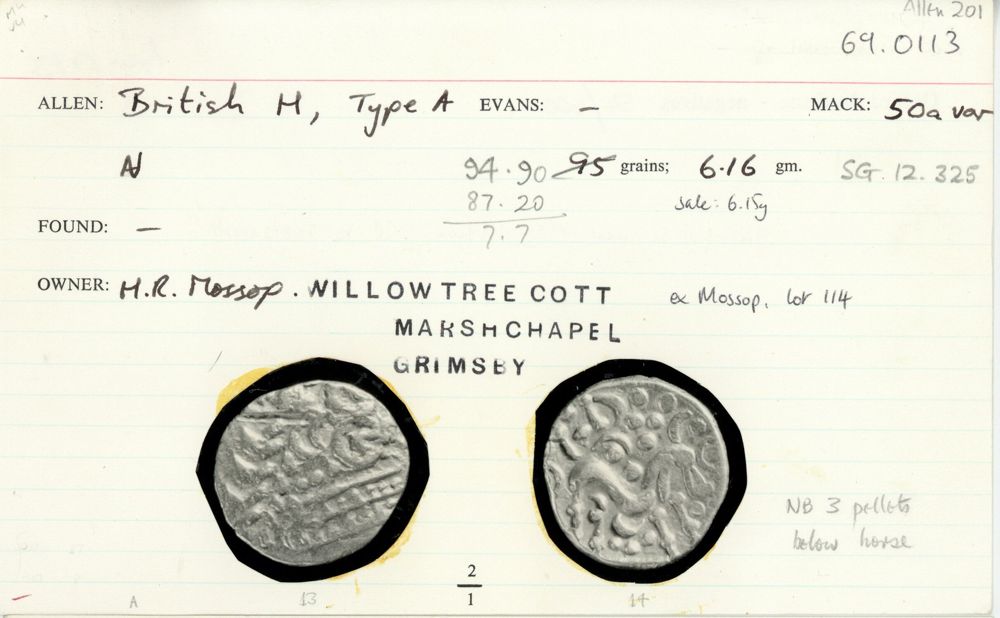 Allen 201
69.0113
ALLEN: British H, Type A EVANS: – MACK: 50a var
AV 94.90 95 grains; 6.16 gm. SG. 12.325
87.20 sale: 6.15g
FOUND: – 7.7
OWNER: H.R. Mossop. WILLOW TREE COTT ex Mossop, lot 114
MARSHCHAPEL
GRIMSBY
NB 3 pellets
below horse
2
1
A 13 14